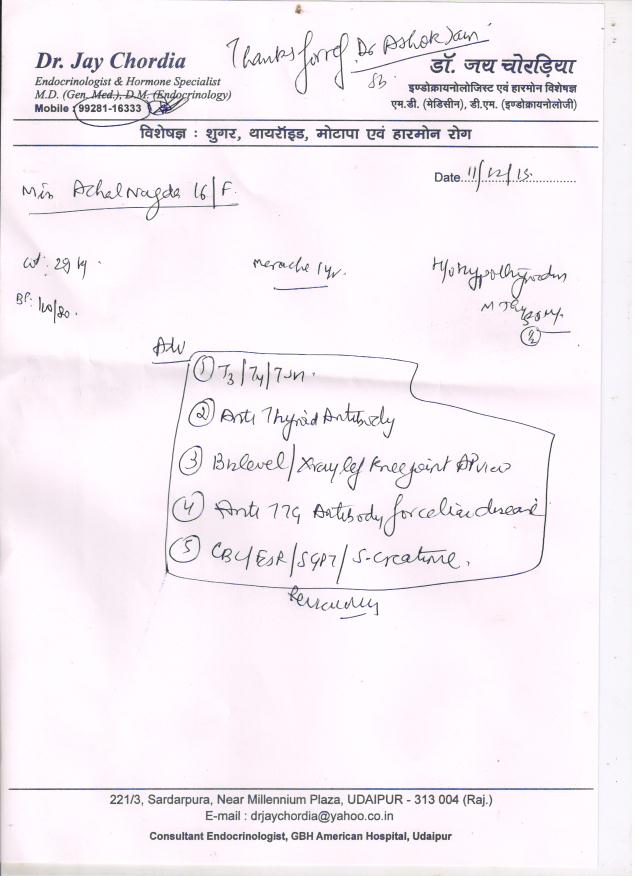 Thanks for ref. Dr Ashok Jain
Dr. Jay Chordia
Endocrinologist & Hormone Specialist
M.D. (Gen. Med.), D.M. (Endocrinology)
Mobile : 99281-16333
डॉ. जय चोरड़िया
इण्डोक्रायनोलोजिस्ट एवं हारमोन विशेषज्ञ
एम.डी. (मेडिसीन), डी.एम. (इण्डोक्रायनोलोजी)
विशेषज्ञ : शुगर, थायरॉइड, मोटापा एवं हारमोन रोग
Date 11/12/15
Miss Achal Nagda 16/F
wt: 29 kg
BP: 110/80
Menarche 1 yr.
H/o Hypothyroidism
Adv
1 T3/T4/TSH.
2 Anti Thyroid Antibody
3 B12 level/Xray left Knee joint AP view
4 Anti TTG Antibody for celiac disease
5 CBC/ESR/SGPT/S-Creatinine.
221/3, Sardarpura, Near Millennium Plaza, UDAIPUR - 313 004 (Raj.)
E-mail : drjaychordia@yahoo.co.in
Consultant Endocrinologist, GBH American Hospital, Udaipur